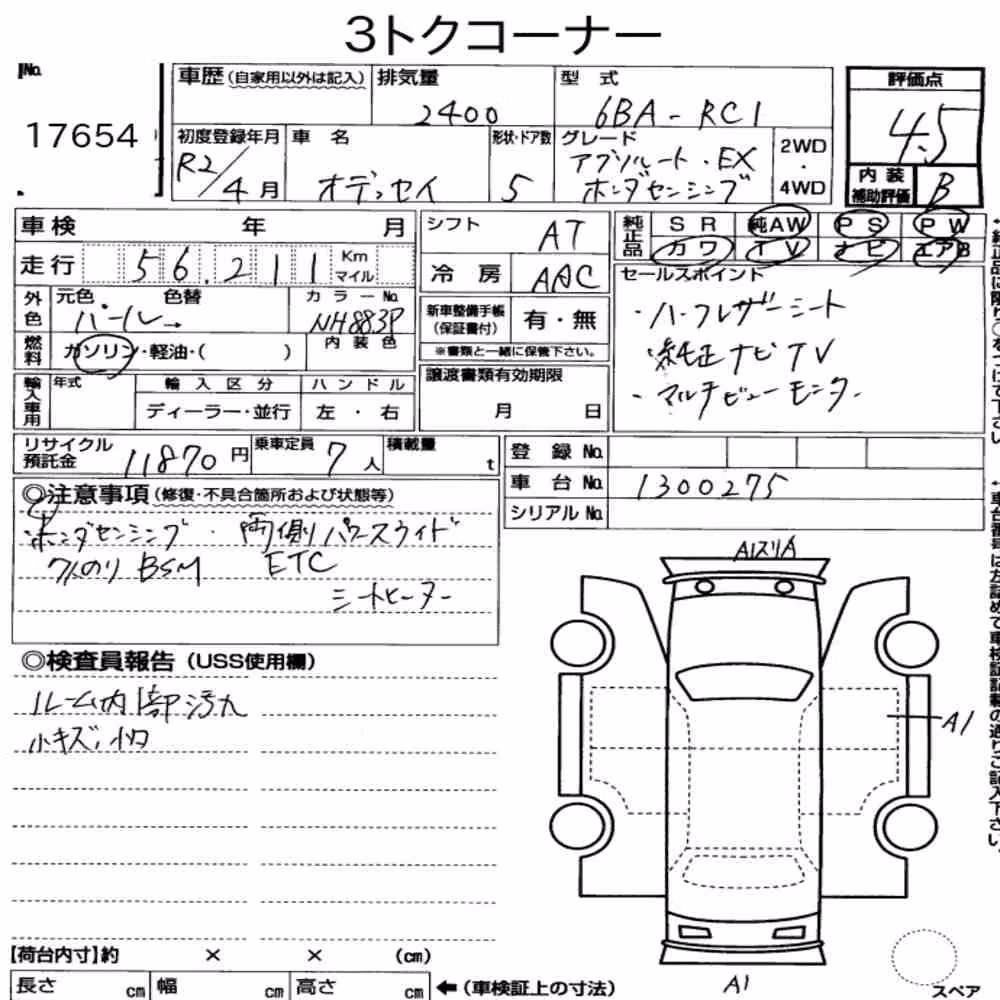 3トクコーナー
No.
17654
車歴(自家用以外は記入)
排気量
2400
型式
6BA-RC1
評価点
4.5
初度登録年月
R2/4月
車名
オデッセイ
形状・ドア数
5
グレード
アブソルート・EX
ホンダセンシング
2WD
・
4WD
内装
補助評価
B
車検 年 月
走行 56,211 Km
マイル
外色
元色 色替
パール→
カラーNo.
NH883P
燃料
ガソリン・軽油・( )
内装色
輸入車用
年式
輸入区分
ディーラー・並行
ハンドル
左・右
シフト
AT
冷房
AAC
新車整備手帳
(保証書付)
有・無
※書類と一緒に保管下さい。
譲渡書類有効期限
月 日
純正品
SR 純AW PS PW
カワ TV ナビ エアB
セールスポイント
・ハーフレザーシート
・純正ナビTV
・マルチビューモニター
リサイクル
預託金
11870円
乗車定員
7人
積載量
t
登録No.
車台No. 1300275
シリアルNo.
◎注意事項(修復・不具合箇所および状態等)
ホンダセンシング・両側パワースライド
BSM ETC
シートヒーター
◎検査員報告(USS使用欄)
ルーム内部汚れ
小キズ、凹
A1スリA
A1
A1
スペア
【荷台内寸】約 × × (cm)
長さ cm 幅 cm 高さ cm
←(車検証上の寸法)